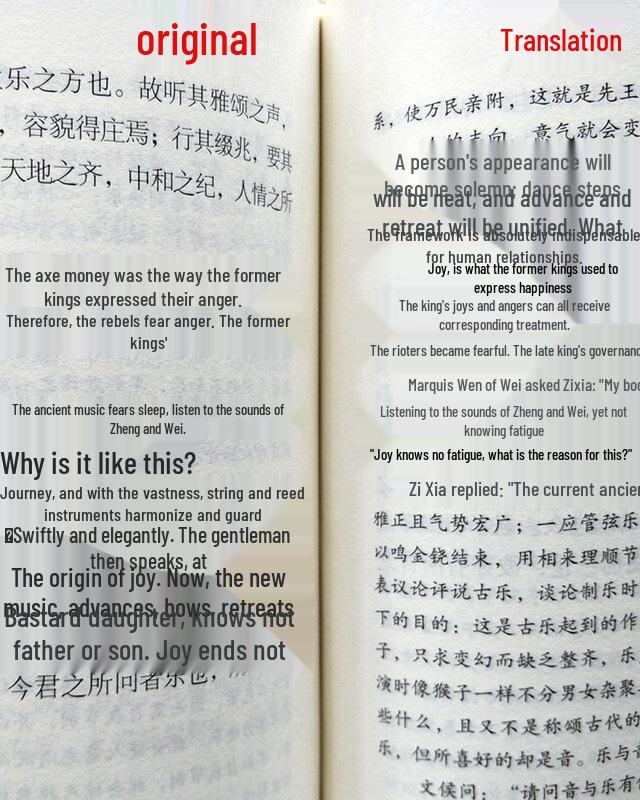 original
乐之方也。故听其雅颂之声,
,容貌得庄焉;行其缀兆,要其
天地之齐,中和之纪,人情之所
The axe money was the way the former
kings expressed their anger.
Therefore, the rebels fear anger. The former
kings'
The ancient music fears sleep, listen to the sounds of
Zheng and Wei.
Why is it like this?
Journey, and with the vastness, string and reed
instruments harmonize and guard
Swiftly and elegantly. The gentleman
then speaks, at
The origin of joy. Now, the new
music, advances, bows, retreats
Bastard daughter, knows not
father or son. Joy ends not
今君之所问者乐也,
Translation
系,使万民亲附,这就是先王
的志向,意气就会变
A person's appearance will
become solemn; dance steps
will be neat, and advance and
retreat will be unified. What
The framework is absolutely indispensable
for human relationships.
Joy, is what the former kings used to
express happiness
The king's joys and angers can all receive
corresponding treatment.
The rioters became fearful. The late king's governanc
Marquis Wen of Wei asked Zixia: "My bo
Listening to the sounds of Zheng and Wei, yet not
knowing fatigue
"Joy knows no fatigue, what is the reason for this?"
Zi Xia replied: "The current ancien
雅正且气势宏广;一应管弦乐
以鸣金铙结束,用相来理顺节
表议论评说古乐,谈论制乐时
下的目的:这是古乐起到的作
子,只求变幻而缺乏整齐,乐
演时像猴子一样不分男女杂聚
些什么,且又不是称颂古代的
乐,但所喜好的却是音。乐与音
文侯问:“请问音与乐有